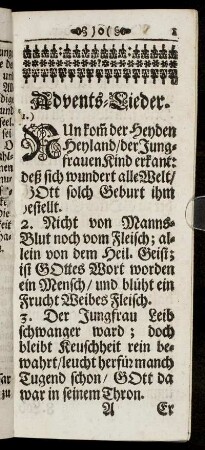 )o( 1
Advents-Lieder.
1.)
NUn kom̃ der Heyden
Heyland/der Jung-
frauen Kind erkant:
deß sich wundert alle Welt/
GOtt solch Geburt ihm
bestellt.
2. Nicht von Manns-
Blut noch vom Fleisch; al-
lein von dem Heil. Geist;
ist GOttes Wort worden
ein Mensch/ und blüht ein
Frucht Weibes Fleisch.
3. Der Jungfrau Leib
schwanger ward; doch
bleibt Keuschheit rein be-
wahrt/leucht herfür manch
Tugend schon/ GOtt da
war in seinem Thron.
A Er